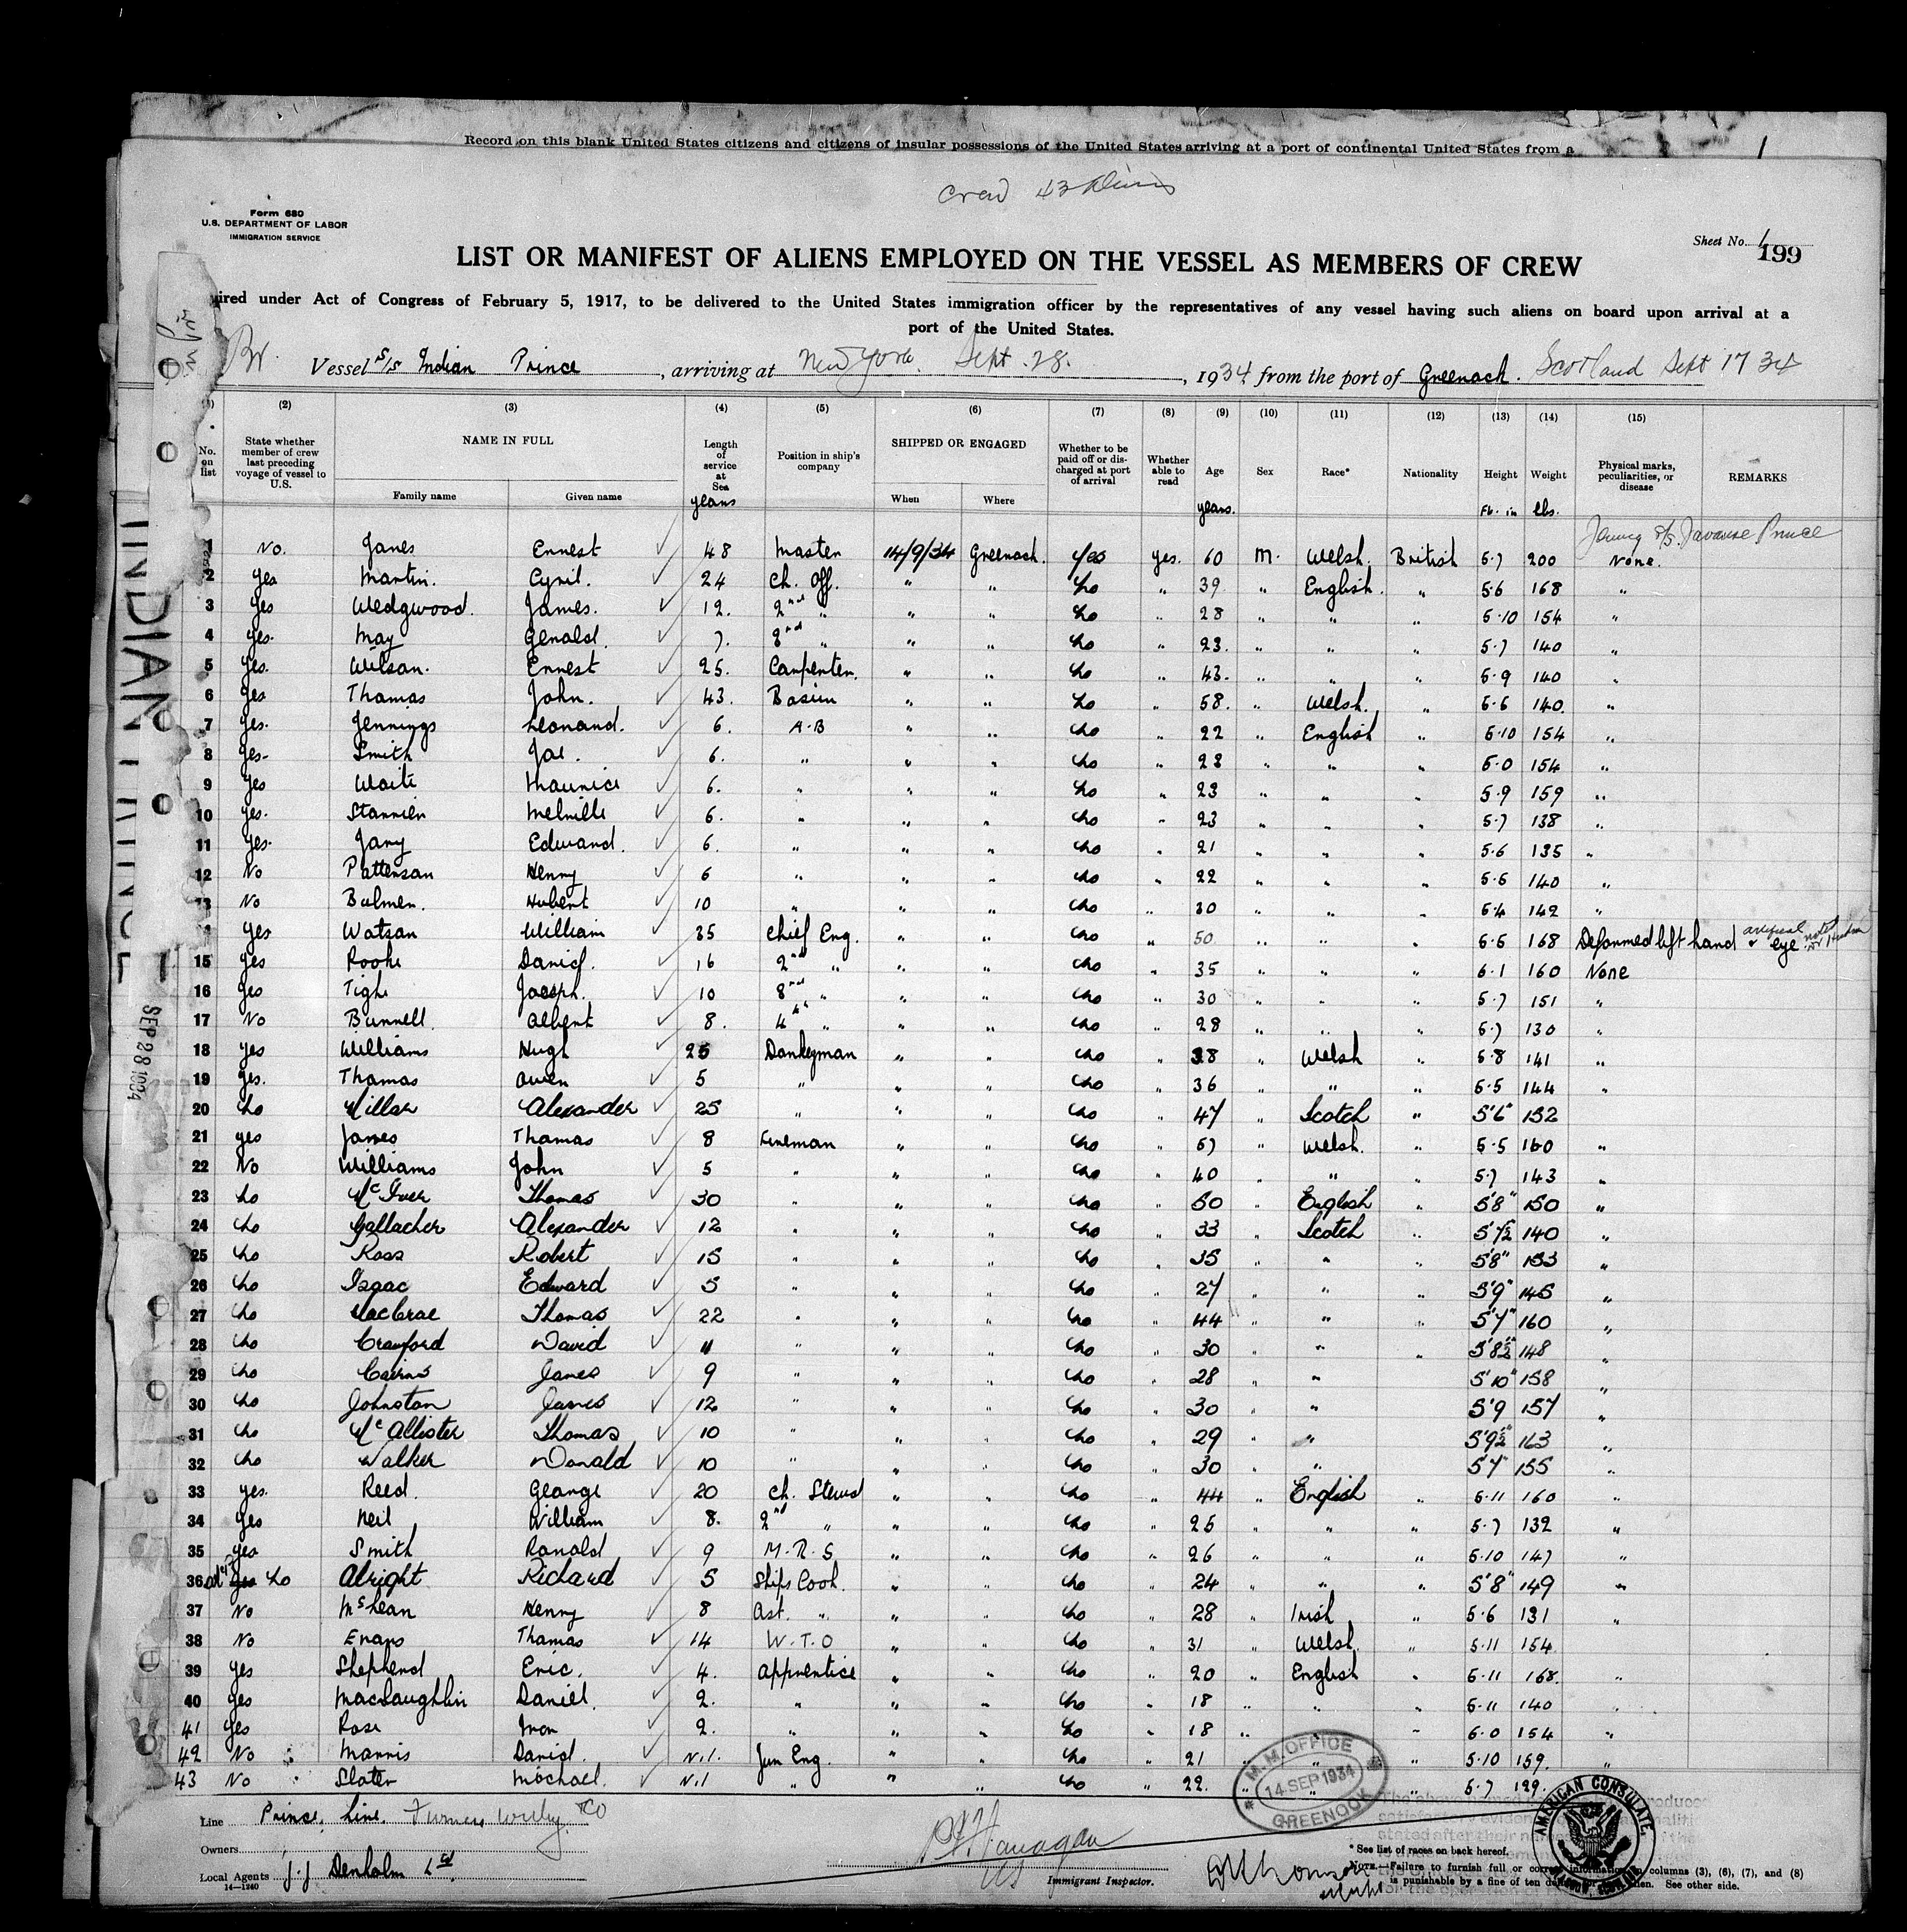 Record on this blank United States citizens and citizens of insular possessions of the United States arriving at a port of continental United States from a
1
Crew 43 Aliens
Form 680
U.S. DEPARTMENT OF LABOR
IMMIGRATION SERVICE
Sheet No. 1
199
LIST OR MANIFEST OF ALIENS EMPLOYED ON THE VESSEL AS MEMBERS OF CREW
ired under Act of Congress of February 5, 1917, to be delivered to the United States immigration officer by the representatives of any vessel having such aliens on board upon arrival at a
port of the United States.
Br. Vessel S/S Indian Prince, arriving at New York. Sept. 28., 1934 from the port of Greenock. Scotland Sept 17 34
(2) (3) (4) (5) (6) (7) (8) (9) (10) (11) (12) (13) (14) (15)
No. on list State whether member of crew last preceding voyage of vessel to U.S. NAME IN FULL Family name Given name Length of service at Sea years Position in ship's company SHIPPED OR ENGAGED When Where Whether to be paid off or discharged at port of arrival Whether able to read Age years. Sex Race* Nationality Height Ft. in Weight lbs. Physical marks, peculiarities, or disease REMARKS
Javanese Prince
1 No. Jones Ernest ✓ 48 Master 14/9/34 Greenock. yes yes. 60 M. Welsh. British 5.7 200 None.
2 Yes Martin. Cyril. ✓ 24 Ch. Off. " " No " 39 " English. " 5.6 168 "
3 Yes Wedgwood. James. ✓ 12. 2nd " " " No " 28 " " " 5.10 154 "
4 Yes. May Gerald. ✓ 7. 3rd " " " No " 23. " " " 5.7 140 "
5 Yes. Wilson. Ernest ✓ 25. Carpenter. " " No " 43. " " " 5.9 140 "
6 Yes Thomas John. ✓ 43. Bosun " " No " 58. " Welsh. " 5.6 140. "
7 Yes. Jennings Leonard. ✓ 6. A.B " " No " 22 " English " 5.10 154 "
8 Yes. Smith Joe. ✓ 6. " " " No " 23 " " " 6.0 154 "
9 Yes Waite Maurice ✓ 6. " " " No " 23 " " " 5.9 159 "
10 Yes. Melville ✓ 6. " " " No " 23 " " " 5.7 138 "
11 Yes. Edward. ✓ 6. " " " No " 21 " " " 5.6 135 "
12 No Patterson Henry ✓ 6 " " " No " 22 " " " 5.6 140 "
13 No Bulmer. Hubert ✓ 10 " " " No " 30 " " " 5.4 142 "
Yes Watson William ✓ 35 Chief Eng. " " No " 50 " " " 5.6 168 Deformed left hand & eye
15 Yes Rooke Daniel. ✓ 16 2nd " " " No " 35 " " " 6.1 160 None
16 Yes Tighe Joseph. ✓ 10 3rd " " " No " 30 " " " 5.7 151 "
17 No Bunnell. Albert ✓ 8. 4th " " " No " 28 " " " 5.7 130 "
18 Yes Williams Hugh ✓ 25 Donkeyman " " No " 38 " Welsh " 5.8 141 "
19 Yes. Thomas Owen ✓ 5 " " " No " 36 " " " 5.5 144 "
20 No Millar Alexander ✓ 25 " " " No " 47 " Scotch " 5'6" 152
21 yes James Thomas ✓ 8 Fireman " " No " 57 " Welsh. " 5.5 160 "
22 No Williams John ✓ 5 " " " No " 40 " " " 5.7 143 "
23 No McIver Thomas ✓ 30 " " " No " 50 " English " 5'8" 150 "
24 No Gallacher Alexander ✓ 12 " " " No " 33 " Scotch " 5'7½ 140 "
25 No Ross Robert ✓ 15 " " " No " 35 " " " 5'8" 153 "
26 No Isaac Edward ✓ 5 " " " No " 27 " " " 5'9" 145 "
27 No MacCrae Thomas ✓ 22 " " " No " 44 " " " 5'7" 160 "
28 No Crawford David ✓ 11 " " " No " 30 " " " 5'8½ 148 "
29 No Cairns James ✓ 9 " " " No " 28 " " " 5'10" 158 "
30 No Johnston James ✓ 12 " " " No " 30 " " " 5'9 157 "
31 No McAllister Thomas ✓ 10 " " " No " 29 " " " 5'9½ 163 "
32 No Walker Donald ✓ 10 " " " No " 30 " " " 5'7" 155 "
33 yes. Reed. George ✓ 20 Ch. Steward " " No " 44 " English " 5.11 160 "
34 Yes Neil William ✓ 8. 2nd " " " No " 25 " " " 5.7 132 "
35 Yes Smith Ronald ✓ 9 M.R.S " " No " 26 " " " 5.10 147 "
36 No Alright Richard ✓ 5 Ships Cook. " " No " 24 " " " 5'8" 149 "
37 No McLean Henry ✓ 8 Ast. " " " No " 28 " Irish " 5.6 131 "
38 No Evans Thomas ✓ 14 W.T.O " " No " 31 " Welsh. " 5.11 154 "
39 Yes Shepherd Eric. ✓ 4. Apprentice " " No " 20 " English " 5.11 168. "
40 Yes MacLaughlin Daniel. ✓ 2. " " " No " 18 " " " 5.11 140 "
41 Yes Rose Ivor ✓ 2. " " " No " 18 " " " 6.0 154 "
42 No Morris Daniel. ✓ Nil. Jun Eng. " " No " 21 " " " 5.10 159. "
43 No Slater Michael. ✓ Nil " " " No " 22. " " " 5.7 129.
INDIAN PRINCE
SEP 28 1934
M.M. OFFICE
14 SEP 1934
GREENOCK
AMERICAN CONSULATE,
Line Prince. Line. Furness Withy & Co
Owners
Local Agents J.J Denholm Ltd
14—1240
Immigrant Inspector.
* See list of races on back hereof.
NOTE.—Failure to furnish full or correct information in columns (3), (6), (7), and (8)
is punishable by a fine of ten dollars for each alien. See other side.